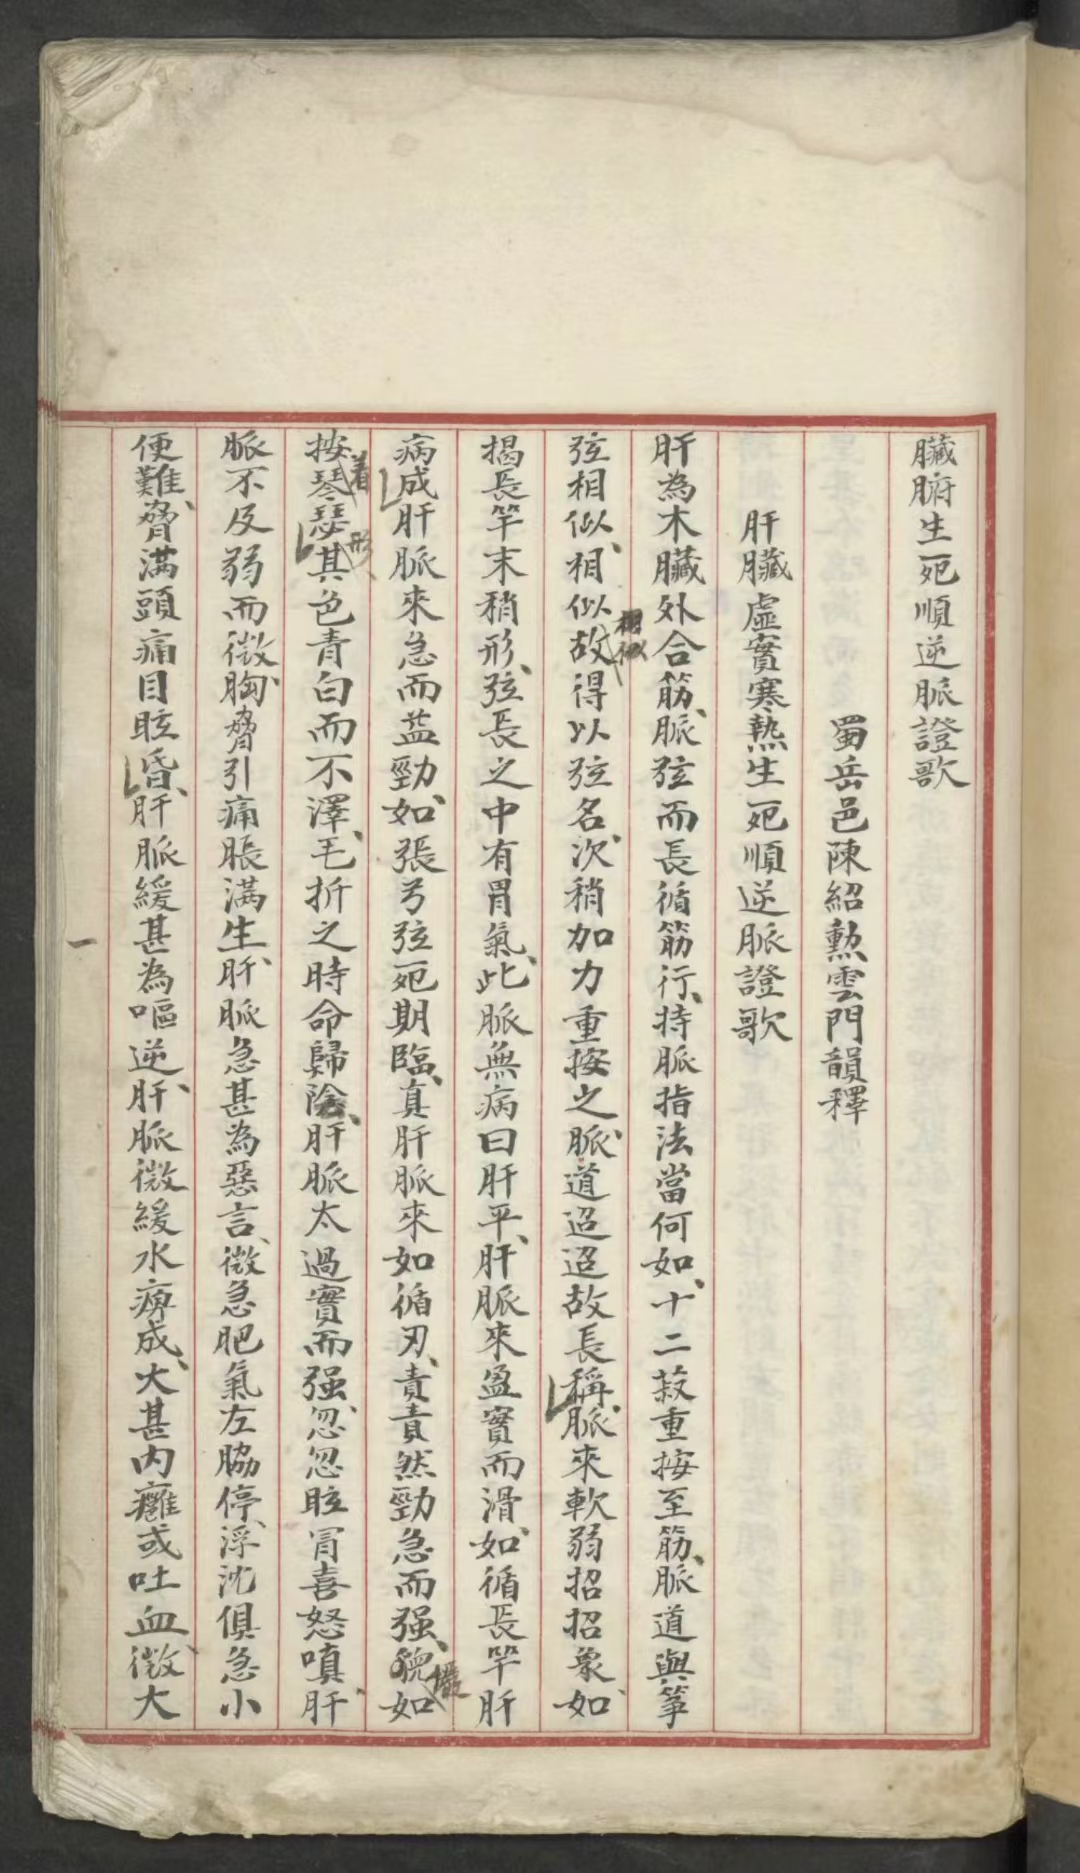 臟腑生死順逆脈證歌
蜀岳邑陳紹勲雲門韻釋
肝臟虛實寒熱生死順逆脈證歌
肝為木臟外合筋、脈弦而長循筋行、持脈指法當何如、十二菽重按至筋、脈道與箏
弦相似、相似故得以弦名、次稍加力重按之、脈道迢迢故長稱、脈來軟弱招招象、如
相似
揭長竿末稍形、弦長之中有胃氣、此脈無病曰肝平、肝脈來盈實而滑、如循長竿肝
病成、肝脈來急而益勁、如張弓弦死期臨、真肝脈來如循刃、責責然勁急而强、貌如
儼
按琴瑟其色青白而不澤、毛折之時命歸陰、肝脈太過實而强、忽忽眩冒喜怒嗔、肝
着
形
脈不及弱而微、胸脅引痛脹滿生、肝脈急甚為惡言、微急肥氣左脇停、浮沈俱急小
便難、脅滿頭痛目眩昏、肝脈緩甚為嘔逆、肝脈微緩水痹成、大甚内癰或吐血、微大
一